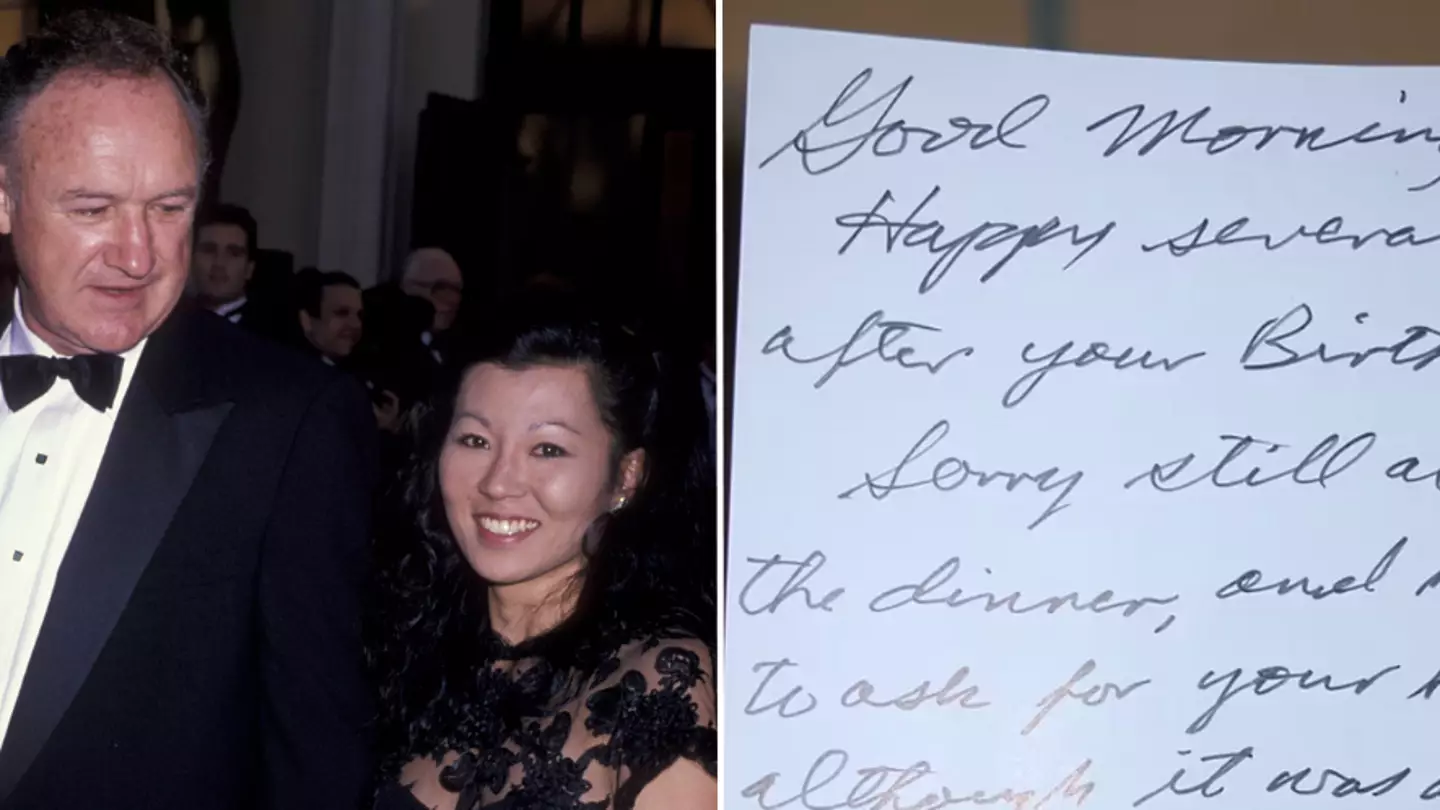 Good Morning
Happy severa
after your Birth
Sorry still a
the dinner, and
to ask for your
although it was